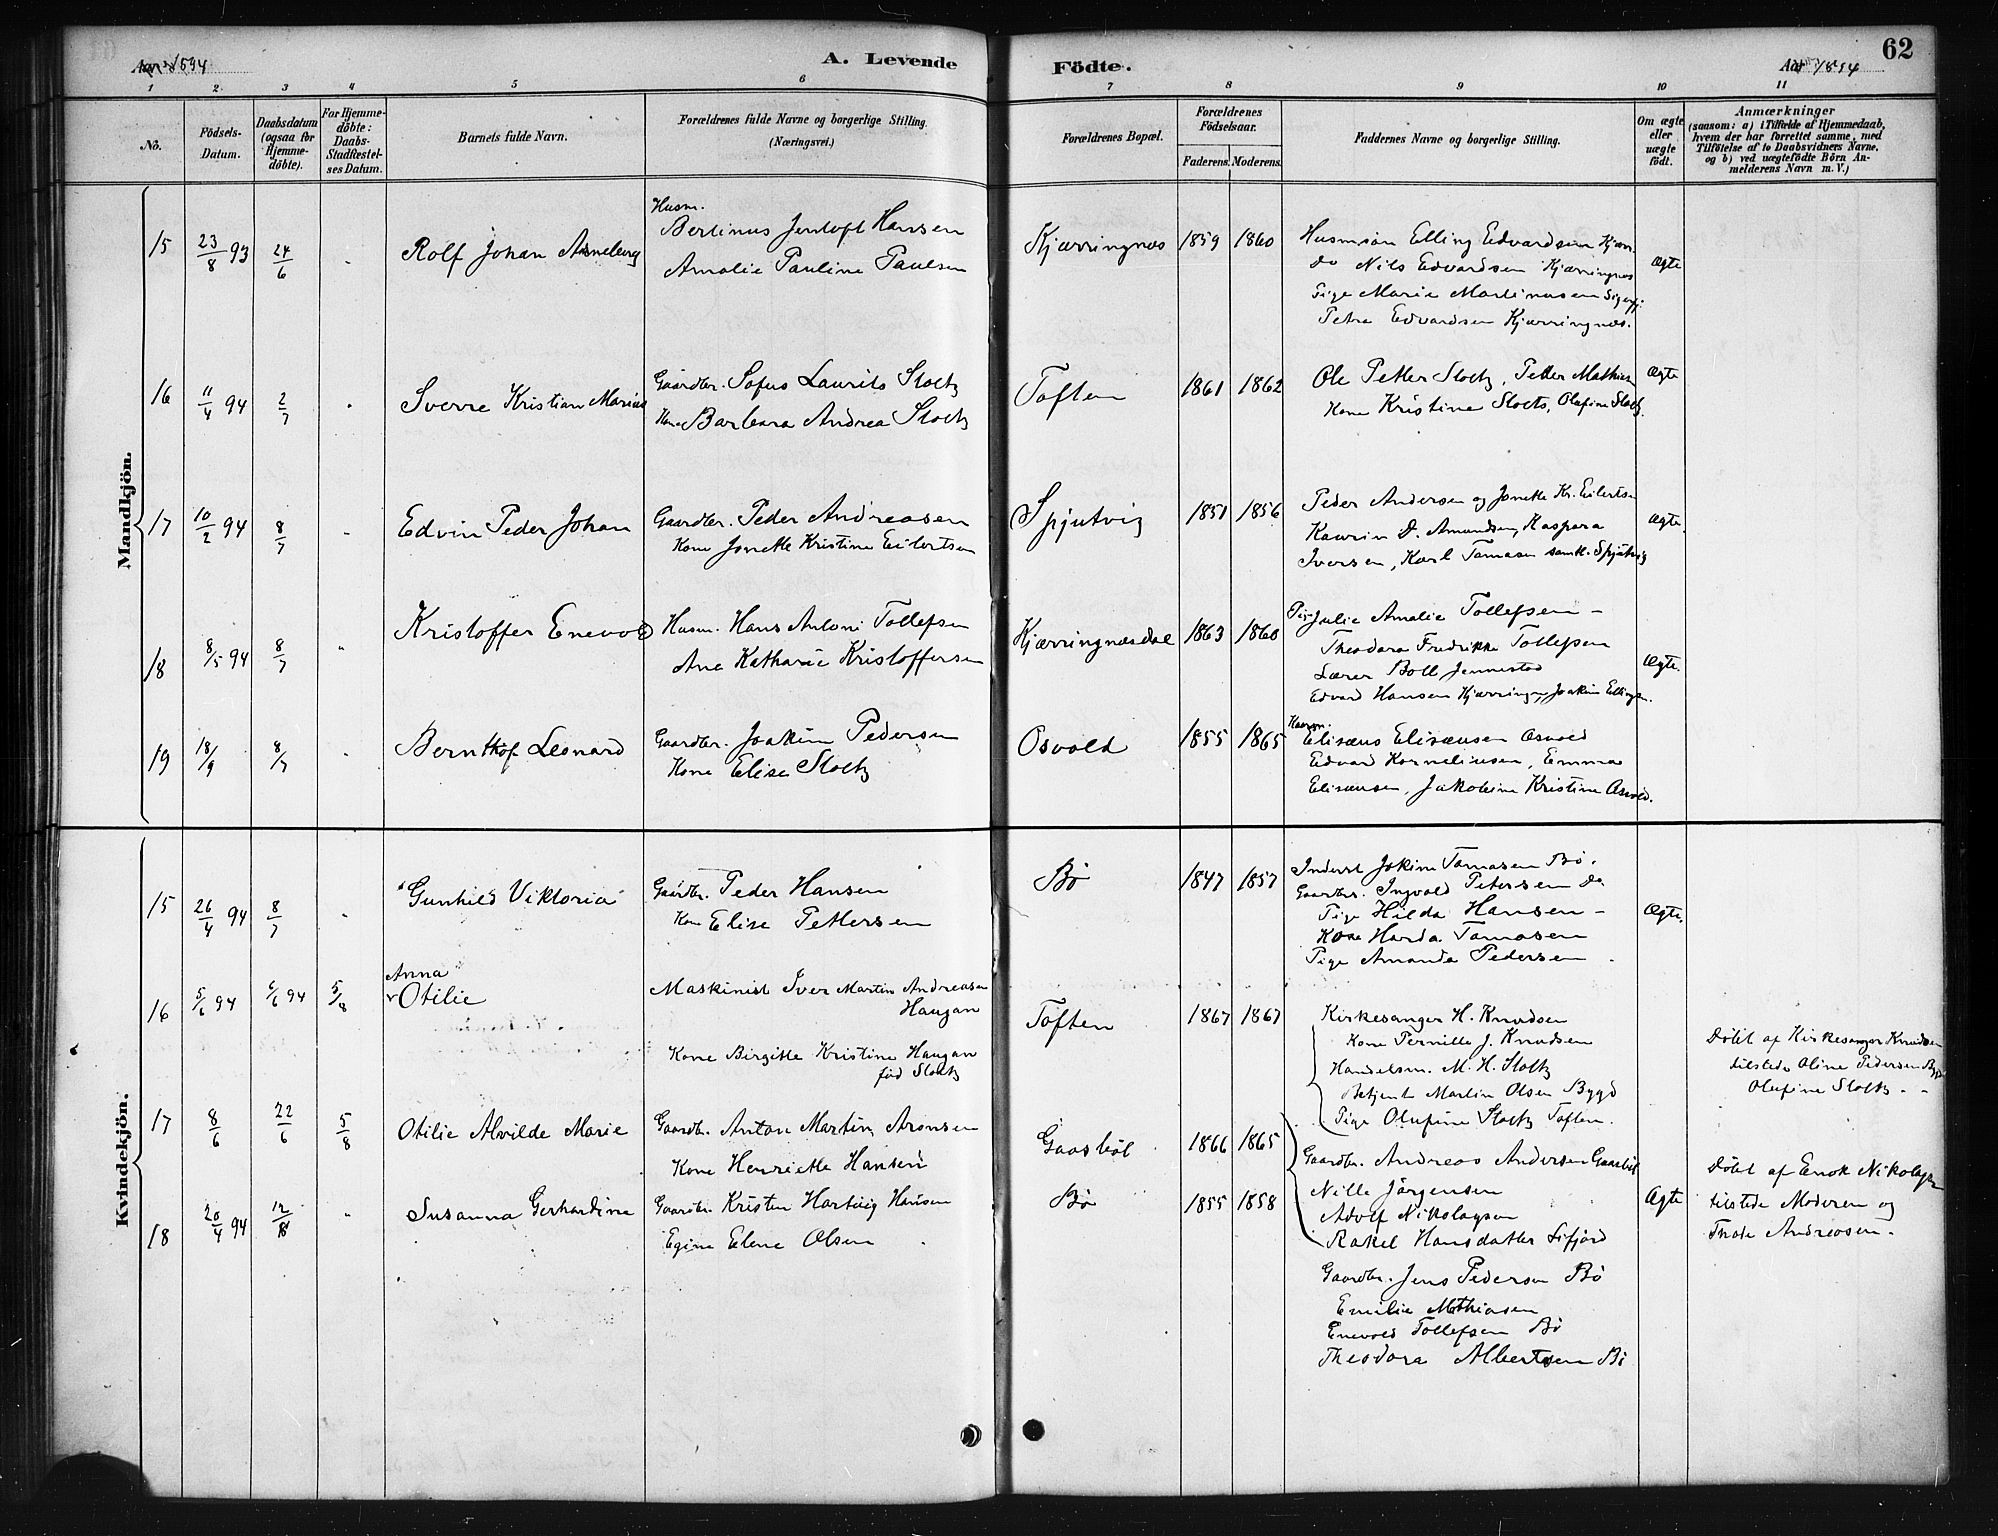 Aar 1894
A. Levende
Födte.
Aar 1894
62
1 2 3 4 5 6 7 8 9 10 11
No.
Födsels-
Datum.
Daabsdatum
(ogsaa for
Hjemme-
döbte).
For Hjemme-
döbte:
Daabs-
Stadfæstel-
ses Datum.
Barnets fulde Navn.
Forældrenes fulde Navne og borgerlige Stilling.
(Næringsvei.)
Forældrenes Bopæl.
Forældrenes
Födselsaar.
Faderens. Moderens.
Faddernes Navne og borgerlige Stilling.
Om ægte
eller
uægte
födt.
Anmærkninger
(saasom: a) i Tilfælde af Hjemmedaab,
hvem der har forrettet samme, med
Tilföielse af to Daabsvidners Navne,
og b) ved uægtefödte Börn An-
melderens Navn m. V.)
Mandkjön.
15 23/8 93 24/6 Rolf Johan Arneberg
Husm.
Bertinus Jentoft Hansen
Amalie Pauline Paulsen
Kjærringnes 1859 1860
Husman Elling Edvardsen Kjær-
do Nils Edvardsen Kjærringnes
Pige Marie Martinusen Sigerfj.
Petra Edvardsen Kjærringnes.
Ægte
16 11/4 94 2/7 Sverre Kristian Marius
Gaardbr. Sofus Laurits Stoltz
Kone Barbara Andrea Stoltz
Toften 1861 1862
Ole Petter Stoltz, Petter Mathisen
Kone Kristine Stolts, Olufine Stoltz.
Ægte
17 10/2 94 8/7 Edvin Peder Johan
Gaardbr. Peder Andreasen
Kone Jonette Kristine Eilertsen
Spjutvig 1851 1856
Peder Andersen og Jonette Kr. Eilertsen
Kawrin D. Amundsen, Kaspara
Iversen, Karl Tomasen samtl. Spjutvig
Ægte.
18 8/5 94 8/7 Kristoffer Enevold
Husm. Hans Antoni Tollefsen
Ane Katharie Kristoffersen
Kjærringnesdal 1863 1860
Pige Julie Amalie Tollefsen -
Theodora Fredrikke Tollefsen
Lærer Boll Jennestad
Edvard Hansen Kjærringnes, Joakim Ellings.
Ægte.
19 18/9 8/7 Bernthof Leonard
Gaardbr. Joakim Pedersen
Kone Elise Stoltz
Osvold 1855 1865
Elisæus Elisæusen Osvold
Edvard Korneliusen, Emma
Elisæusen, Jakobine Kristine Osvold.
Kvindekjön.
15 26/4 94 8/7 Gunhild Viktoria
Gaardbr. Peder Hansen
Kone Elise Pettersen
Bö 1847 1857
Inderst Jokim Tomasen Bö.
Gaardbr. Ingvald Petersen Do
Pige Hilda Hansen -
Kone Harda Tomasen
Pige Amanda Pedersen
Ægte.
16 5/6 94 6/6 94 5/8
Anna
Otilie
Maskinist Iver Martin Andreasen
Haugan
Kone Birgitte Kristine Haugan
föd Stoltz
Toften 1867 1867
Kirkesanger H. Knudsen
Kone Pernille J. Knudsen
Handelsm. M. H. Stoltz
Betjent Martin Olsen Bygd
Pige Olufine Stoltz Toften.
Döbt af Kirkesanger Knudsen
tilstede Oline Pedersen
Olufine Stoltz -
17 8/6 22/6 5/8 Otilie Alvilde Marie
Gaardbr. Anton Martin Aronsen
Kone Henriette Hansen
Gaasböl 1866 1865
Gaardbr. Andreas Andersen Gaasböl
Nille Jörgensen
Adolf Nikolaysen
Rakel Hansdatter Sifjord
Döbt af Enok Nikolaysen
tilstede Moderen og
Thode Andreasen.
18 20/4 94 12/8 Susanna Gerhardine
Gaardbr. Kristen Hartvig Hansen
Egine Elene Olsen
Bö 1855 1858
Gaardbr. Jens Pedersen Bö
Emilie Mathiasen
Enevold Tollefsen Bö
Theodora Albertsen Bö
Ægte